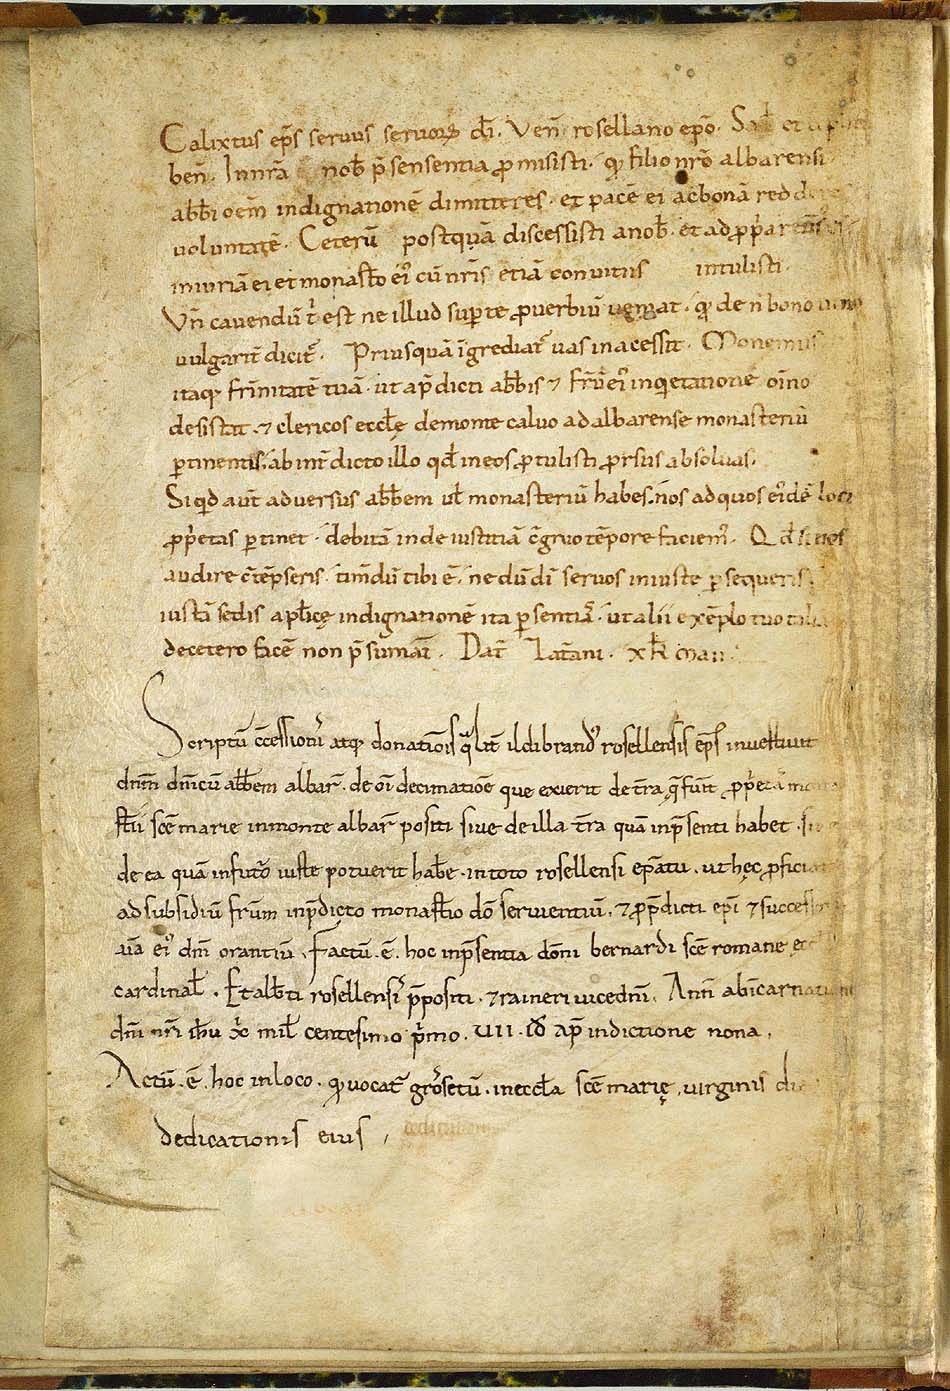 Calixtus ep̄s servus servorꝝ dī. Ven̄ rosellano ep̄o. Sal̄ et
ben̄. In nr̄a nob̄ p̄sensentia ꝓmisisti. qđ filio nr̄o albarensi
abb̄i om̄em indignationē dimitteres. et pacē ei ac bonā redd
voluntatē. Ceterū postquā discessisti a nob̄. et ad ꝓp̄a
iniuriā ei et monast̄o ei᷒ cū nr̄is etiā convitiis intulisti.
Un̄ cavendū t̄ est ne illud sup te ꝓverbiū veniat. qđ de n̄ bono
vulgarit̄ dicit᷑. Priusquā īgrediat᷑ vas inacessit. Monemus
itaqꝫ fr̄nitatē tuā. ut a p̄dicti abb̄is ⁊ fr̄ū ei᷒ inqetatione oīno
desistat. ⁊ clericos eccl̄ę de monte calvo ad albarense monasteriū
ꝑtinentes. ab int̄dicto illo qđ in eos ꝓtulisti ꝓrsus absolvas.
Si qid aut̄ adversus abb̄em ul̄ monasteriū habes. nos ad quos ei᷒dē loci
ꝓp̄etas ꝑtinet. debitā inde iustitiā c̄gruo tēpore faciem᷒. Qđ si nos
audire c̄tēpseris. timēdū tibi ē. ne dū dī servos iniuste ꝑsequeris.
iustā sedis apl̄icę indignationē ita ꝑsentias. ut alii exēplo tuo
de cetero facere non p̄sumāt. Dat̄ Lat̄ani. x kl̄ Maii.
Scriptū c̄cessionis atqꝫ donationis qalit̄ ildibrand᷒ rosellensis ep̄s investivit
dnm̄ dn̄icū abb̄em albar̄. de om̄i decimatiōe que exierit de t̄ra. q̄ ꝓp̄etā
st̄ii sc̄e marie in monte albar̄ positi sive de illa t̄ra quā in p̄senti habet.
de ea quā in futuro iuste potuerit hab̄e. in toto rosellensi ep̄atu. ut hęc ꝓfici
ad subsidiū fr̄um in p̄dicto monast̄io dō servientiū. ⁊ ꝓ p̄dicti epī ⁊ success
ei᷒ dn̄m orantiū. Factū. ē. hoc in p̄sentia dōni bernardi sc̄e romane
cardinal̄. Et alb̄ti rosellensis p̄positi. ⁊ raineri vicedn̄i. Anni ab īcarnatione
dn̄i nr̄i ih̄u xp̄ī mil̄ centesimo p̄mo. VII. id̄ ap̄ indictione nona.
Actū. ē. hoc in loco. qi vocat᷑ grosetū. in eccl̄a sc̄e marię. virginis
dedicationis eius